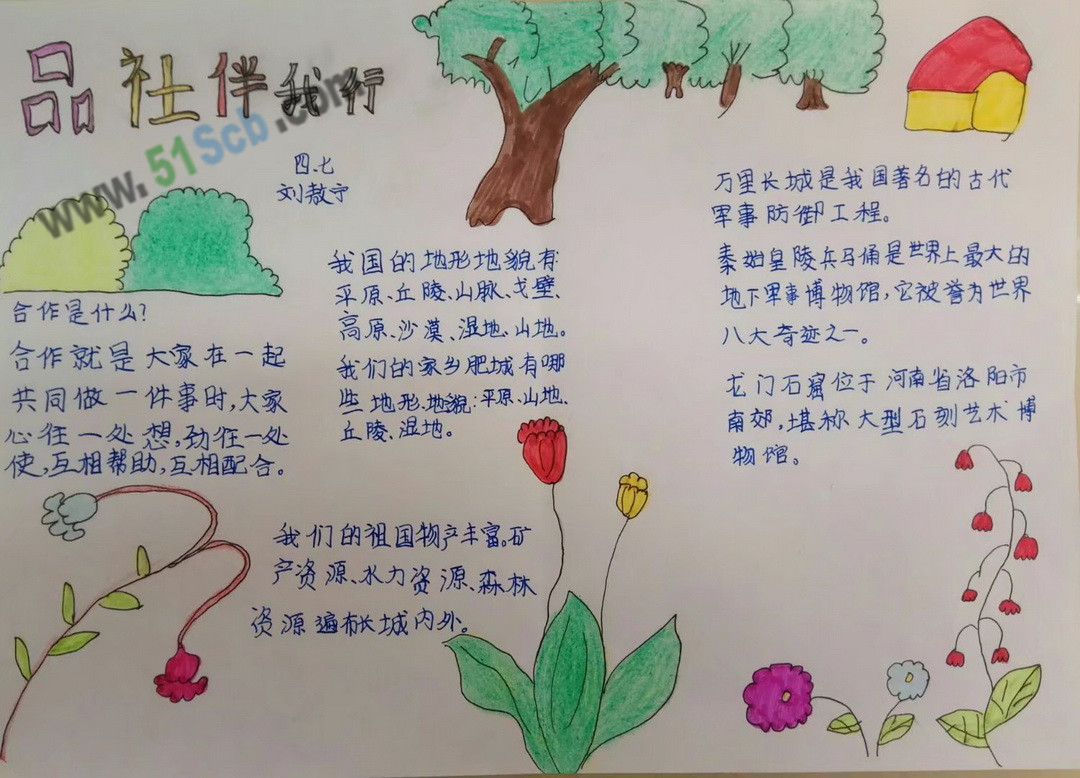 品社伴我行
www.51Scb.com
四.七
刘敖宁
合作是什么?
合作就是大家在一起
共同做一件事时,大家
心往一处想,劲往一处
使,互相帮助,互相配合。
我国的地形地貌有:
平原、丘陵、山脉、戈壁、
高原、沙漠、湿地、山地。
我们的家乡肥城有哪
些地形、地貌:平原、山地、
丘陵、湿地。
我们的祖国物产丰富。矿
产资源、水力资源、森林
资源遍布长城内外。
万里长城是我国著名的古代
军事防御工程。
秦始皇陵兵马俑是世界上最大的
地下军事博物馆,它被誉为世界
八大奇迹之一。
龙门石窟位于河南省洛阳市
南郊,堪称大型石刻艺术博
物馆。